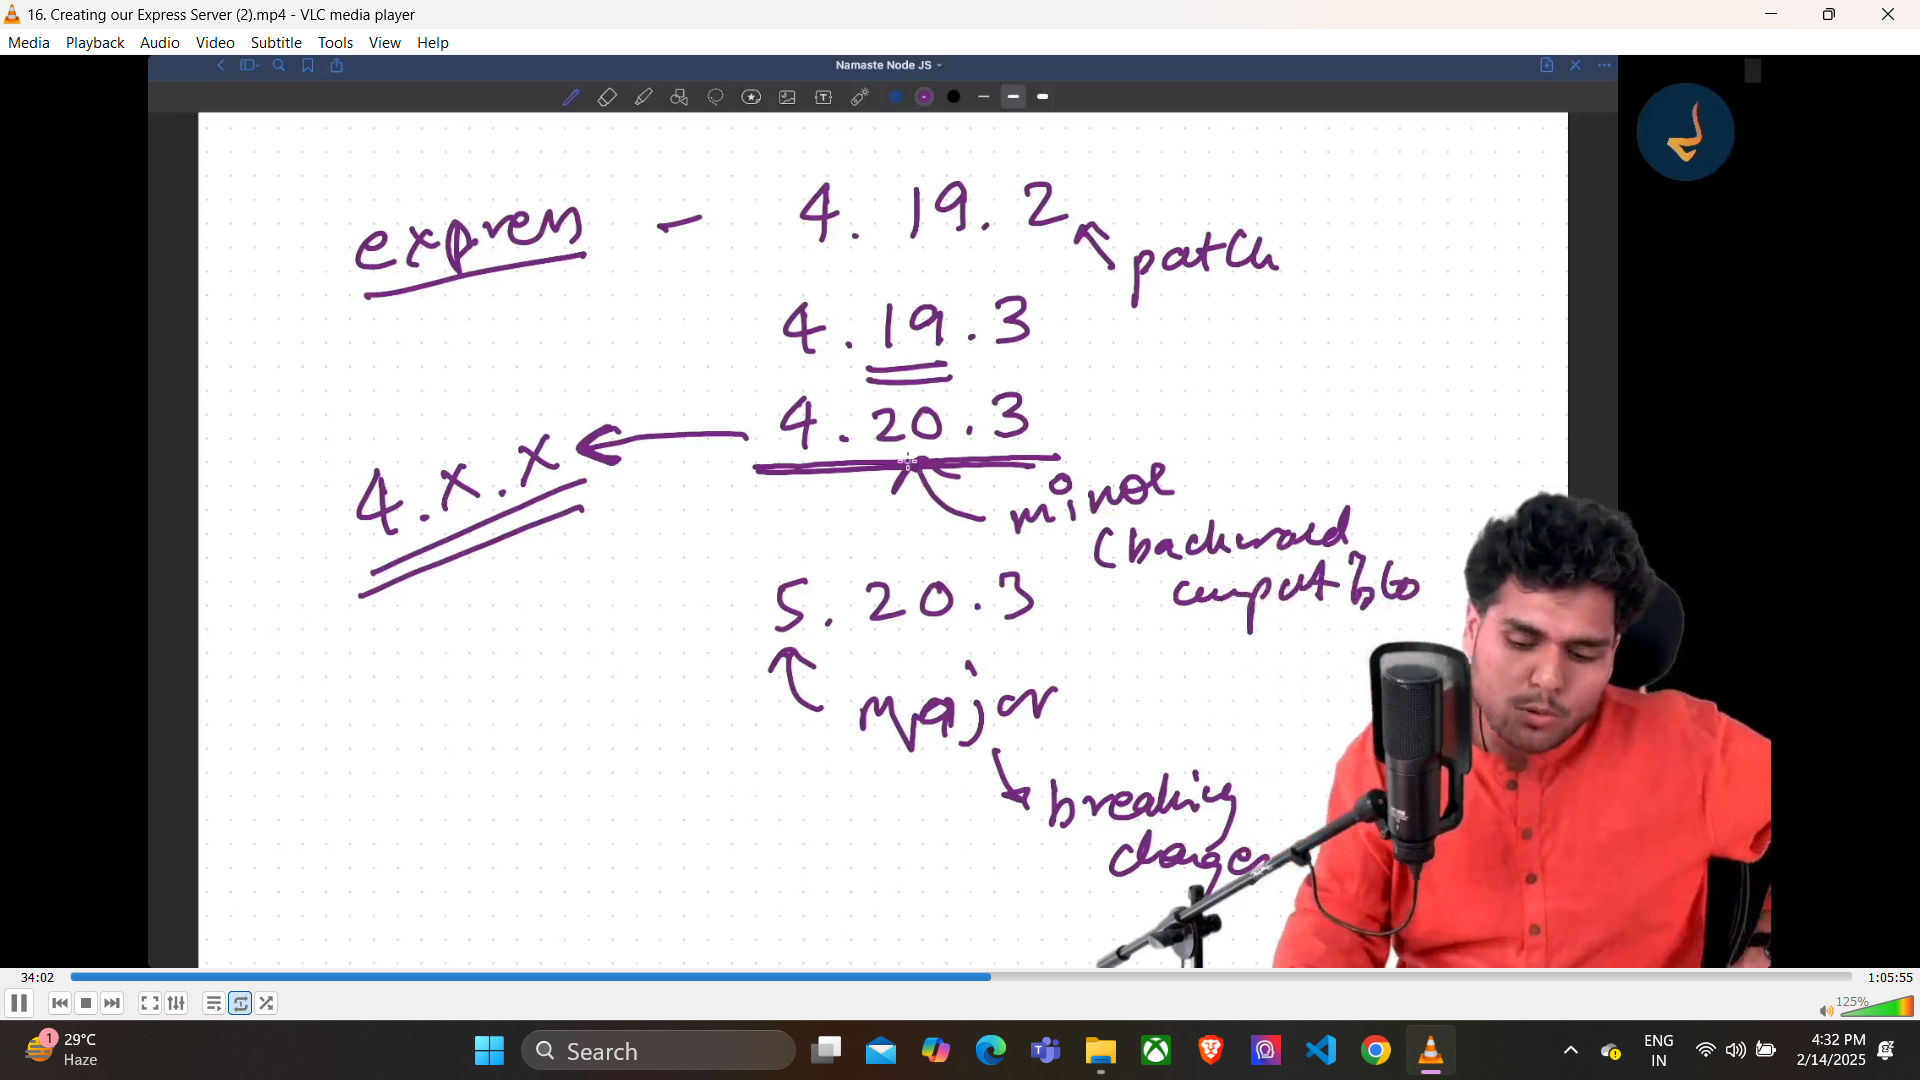 16. Creating our Express Server (2).mp4 - VLC media player
Media Playback Audio Video Subtitle Tools View Help
Namaste Node JS
express - 4.19.2
patch
4.19.3
4.20.3
4.x.x
minor
(backward
5.20.3
major
breaking
changes
34:02
1:05:55
125%
1
29°C
Haze
Search
ENG
IN
4:32 PM
2/14/2025